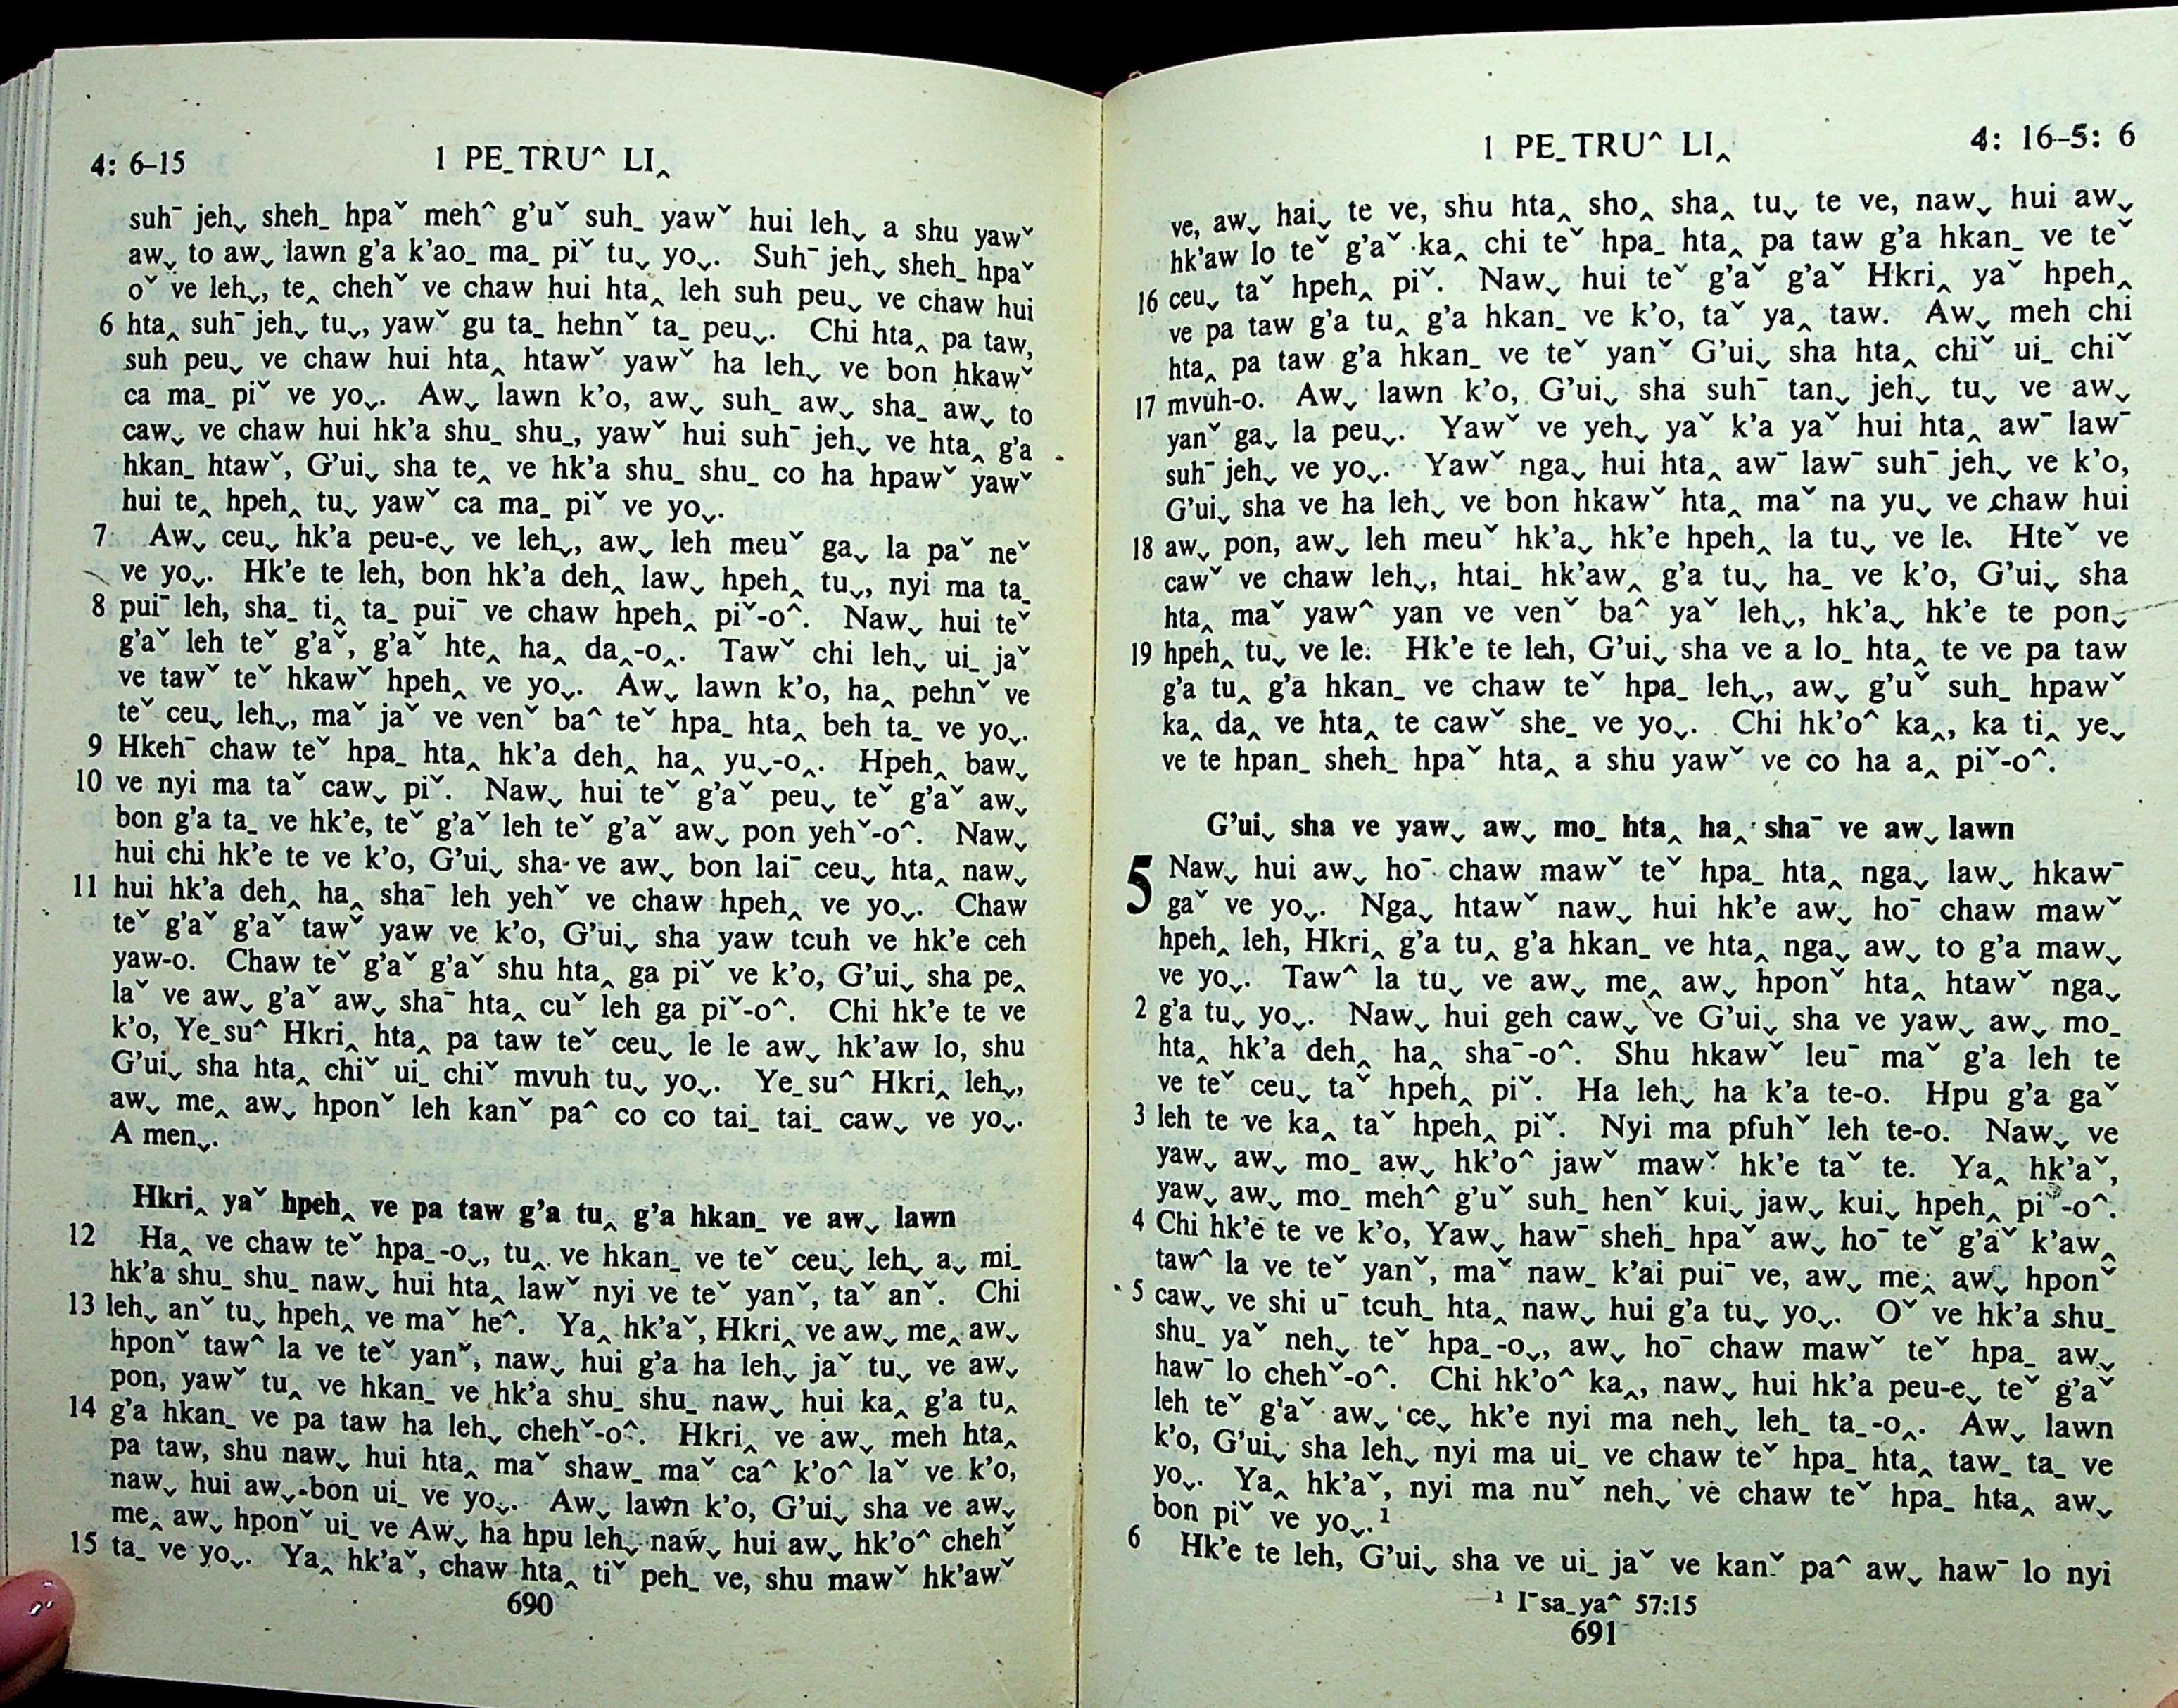 4: 6–15
1 PE_TRU^ LI‸
suh¯ jeh⌄ sheh_ hpaˇ meh^ g’uˇ suh_ yawˇ hui leh⌄ a shu yawˇ
aw⌄ to aw⌄ lawn g’a k’ao_ ma_ piˇ tu⌄ yo⌄. Suh¯ jeh⌄ sheh_ hpaˇ
oˇ ve leh⌄, te‸ chehˇ ve chaw hui hta‸ leh suh peu⌄ ve chaw hui
6 hta‸ suh¯ jeh⌄ tu⌄, yawˇ gu ta_ hehnˇ ta_ peu⌄. Chi hta‸ pa taw,
suh peu⌄ ve chaw hui hta‸ htawˇ yawˇ ha leh⌄ ve bon hkawˇ
ca ma_ piˇ ve yo⌄. Aw⌄ lawn k’o, aw⌄ suh_ aw⌄ sha_ aw⌄ to
caw⌄ ve chaw hui hk’a shu_ shu_, yawˇ hui suh¯ jeh⌄ ve hta‸ g’a
hkan_ htawˇ, G’ui⌄ sha te‸ ve hk’a shu_ shu_ co ha hpawˇ yawˇ
hui te‸ hpeh‸ tu⌄ yawˇ ca ma_ piˇ ve yo⌄.
7 Aw⌄ ceu⌄ hk’a peu-e⌄ ve leh⌄, aw⌄ leh meuˇ ga⌄ la paˇ neˇ
ve yo⌄. Hk’e te leh, bon hk’a deh‸ law⌄ hpeh‸ tu⌄, nyi ma ta_
8 pui¯ leh, sha_ ti‸ ta_ pui¯ ve chaw hpeh‸ piˇ-o^. Naw⌄ hui teˇ
g’aˇ leh teˇ g’aˇ, g’aˇ hte‸ ha‸ da‸-o‸. Tawˇ chi leh⌄ ui_ jaˇ
ve tawˇ teˇ hkawˇ hpeh‸ ve yo⌄. Aw⌄ lawn k’o, ha‸ pehnˇ ve
teˇ ceu⌄ leh⌄, maˇ jaˇ ve venˇ ba^ teˇ hpa_ hta‸ beh ta_ ve yo⌄.
9 Hkeh¯ chaw teˇ hpa_ hta‸ hk’a deh‸ ha‸ yu⌄-o‸. Hpeh‸ baw⌄
10 ve nyi ma taˇ caw⌄ piˇ. Naw⌄ hui teˇ g’aˇ peu⌄ teˇ g’aˇ aw⌄
bon g’a ta_ ve hk’e, teˇ g’aˇ leh teˇ g’aˇ aw⌄ pon yehˇ-o^. Naw⌄
hui chi hk’e te ve k’o, G’ui⌄ sha ve aw⌄ bon lai¯ ceu⌄ hta‸ naw⌄
11 hui hk’a deh‸ ha‸ sha¯ leh yehˇ ve chaw hpeh‸ ve yo⌄. Chaw
teˇ g’aˇ g’aˇ tawˇ yaw ve k’o, G’ui⌄ sha yaw tcuh ve hk’e ceh
yaw-o. Chaw teˇ g’aˇ g’aˇ shu hta‸ ga piˇ ve k’o, G’ui⌄ sha pe‸
laˇ ve aw⌄ g’aˇ aw⌄ sha¯ hta‸ cuˇ leh ga piˇ-o^. Chi hk’e te ve
k’o, Ye_su^ Hkri‸ hta‸ pa taw teˇ ceu⌄ le le aw⌄ hk’aw lo, shu
G’ui⌄ sha hta‸ chiˇ ui_ chiˇ mvuh tu⌄ yo⌄. Ye_su^ Hkri‸ leh⌄,
aw⌄ me‸ aw⌄ hponˇ leh kanˇ pa^ co co tai_ tai_ caw⌄ ve yo⌄.
A men⌄.
Hkri‸ yaˇ hpeh‸ ve pa taw g’a tu‸ g’a hkan_ ve aw⌄ lawn
12 Ha‸ ve chaw teˇ hpa_-o⌄, tu‸ ve hkan_ ve teˇ ceu⌄ leh⌄ a⌄ mi_
hk’a shu_ shu_ naw⌄ hui hta‸ lawˇ nyi ve teˇ yanˇ, taˇ anˇ. Chi
13 leh⌄ anˇ tu⌄ hpeh‸ ve maˇ he^. Ya‸ hk’aˇ, Hkri‸ ve aw⌄ me‸ aw⌄
hponˇ taw^ la ve teˇ yanˇ, naw⌄ hui g’a ha leh⌄ jaˇ tu⌄ ve aw⌄
pon, yawˇ tu‸ ve hkan_ ve hk’a shu_ shu_ naw⌄ hui ka‸ g’a tu‸
14 g’a hkan_ ve pa taw ha leh⌄ chehˇ-o^. Hkri‸ ve aw⌄ meh hta‸
pa taw, shu naw⌄ hui hta‸ maˇ shaw_ maˇ ca^ k’o^ laˇ ve k’o,
naw⌄ hui aw⌄ bon ui_ ve yo⌄. Aw⌄ lawn k’o, G’ui⌄ sha ve aw⌄
me‸ aw⌄ hponˇ ui_ ve Aw⌄ ha hpu leh⌄ naw⌄ hui aw⌄ hk’o^ chehˇ
15 ta_ ve yo⌄. Ya‸ hk’aˇ, chaw hta‸ tiˇ peh_ ve, shu mawˇ hk’awˇ
690
1 PE_TRU^ LI‸
4: 16–5: 6
ve, aw⌄ hai⌄ te ve, shu hta‸ sho‸ sha‸ tu⌄ te ve, naw⌄ hui aw⌄
hk’aw lo teˇ g’aˇ ka‸ chi teˇ hpa_ hta‸ pa taw g’a hkan_ ve teˇ
16 ceu⌄ taˇ hpeh‸ piˇ. Naw⌄ hui teˇ g’aˇ g’aˇ Hkri‸ yaˇ hpeh‸
ve pa taw g’a tu‸ g’a hkan_ ve k’o, taˇ ya‸ taw. Aw⌄ meh chi
hta‸ pa taw g’a hkan_ ve teˇ yanˇ G’ui⌄ sha hta‸ chiˇ ui_ chiˇ
17 mvuh-o. Aw⌄ lawn k’o, G’ui⌄ sha suh¯ tan⌄ jeh⌄ tu⌄ ve aw⌄
yanˇ ga⌄ la peu⌄. Yawˇ ve yeh⌄ yaˇ k’a yaˇ hui hta‸ aw¯ law¯
suh¯ jeh⌄ ve yo⌄. Yawˇ nga⌄ hui hta‸ aw¯ law¯ suh¯ jeh⌄ ve k’o,
G’ui⌄ sha ve ha leh⌄ ve bon hkawˇ hta‸ maˇ na yu⌄ ve chaw hui
18 aw⌄ pon, aw⌄ leh meuˇ hk’a⌄ hk’e hpeh‸ la tu⌄ ve le. Hteˇ ve
cawˇ ve chaw leh⌄, htai_ hk’aw‸ g’a tu⌄ ha_ ve k’o, G’ui⌄ sha
hta‸ maˇ yaw^ yan ve venˇ ba^ yaˇ leh⌄, hk’a⌄ hk’e te pon⌄
19 hpeh‸ tu⌄ ve le. Hk’e te leh, G’ui⌄ sha ve a lo_ hta‸ te ve pa taw
g’a tu‸ g’a hkan_ ve chaw teˇ hpa_ leh⌄, aw⌄ g’uˇ suh_ hpawˇ
ka‸ da‸ ve hta‸ te cawˇ she_ ve yo⌄. Chi hk’o^ ka‸, ka ti‸ ye⌄
ve te hpan_ sheh_ hpaˇ hta‸ a shu yawˇ ve co ha a‸ piˇ-o^.
G’ui⌄ sha ve yaw⌄ aw⌄ mo_ hta‸ ha‸ sha¯ ve aw⌄ lawn
5 Naw⌄ hui aw⌄ ho¯ chaw mawˇ teˇ hpa_ hta‸ nga⌄ law⌄ hkaw¯
gaˇ ve yo⌄. Nga⌄ htawˇ naw⌄ hui hk’e aw⌄ ho¯ chaw mawˇ
hpeh‸ leh, Hkri‸ g’a tu‸ g’a hkan_ ve hta‸ nga⌄ aw⌄ to g’a maw⌄
ve yo⌄. Taw^ la tu⌄ ve aw⌄ me‸ aw⌄ hponˇ hta‸ htawˇ nga⌄
2 g’a tu⌄ yo⌄. Naw⌄ hui geh caw⌄ ve G’ui⌄ sha ve yaw⌄ aw⌄ mo_
hta‸ hk’a deh‸ ha‸ sha¯-o^. Shu hkawˇ leu¯ maˇ g’a leh te
ve teˇ ceu⌄ taˇ hpeh‸ piˇ. Ha leh⌄ ha k’a te-o. Hpu g’a gaˇ
3 leh te ve ka‸ taˇ hpeh‸ piˇ. Nyi ma pfuhˇ leh te-o. Naw⌄ ve
yaw⌄ aw⌄ mo_ aw⌄ hk’o^ jawˇ mawˇ hk’e taˇ te. Ya‸ hk’aˇ,
yaw⌄ aw⌄ mo_ meh^ g’uˇ suh_ henˇ kui⌄ jaw⌄ kui⌄ hpeh‸ piˇ-o^.
4 Chi hk’e te ve k’o, Yaw⌄ haw¯ sheh_ hpaˇ aw⌄ ho¯ teˇ g’aˇ k’aw‸
taw^ la ve teˇ yanˇ, maˇ naw_ k’ai pui¯ ve, aw⌄ me‸ aw⌄ hponˇ
5 caw⌄ ve shi u¯ tcuh_ hta‸ naw⌄ hui g’a tu⌄ yo⌄. Oˇ ve hk’a shu_
shu_ yaˇ neh⌄ teˇ hpa_-o⌄, aw⌄ ho¯ chaw mawˇ teˇ hpa_ aw⌄
haw¯ lo chehˇ-o^. Chi hk’o^ ka‸, naw⌄ hui hk’a peu-e⌄ teˇ g’aˇ
leh teˇ g’aˇ aw⌄ ce⌄ hk’e nyi ma neh⌄ leh_ ta_-o‸. Aw⌄ lawn
k’o, G’ui⌄ sha leh⌄ nyi ma ui_ ve chaw teˇ hpa_ hta‸ taw_ ta_ ve
yo⌄. Ya‸ hk’aˇ, nyi ma nuˇ neh⌄ ve chaw teˇ hpa_ hta‸ aw⌄
bon piˇ ve yo⌄.¹
6 Hk’e te leh, G’ui⌄ sha ve ui_ jaˇ ve kanˇ pa^ aw⌄ haw¯ lo nyi
¹ I¯sa_ya^ 57:15
691